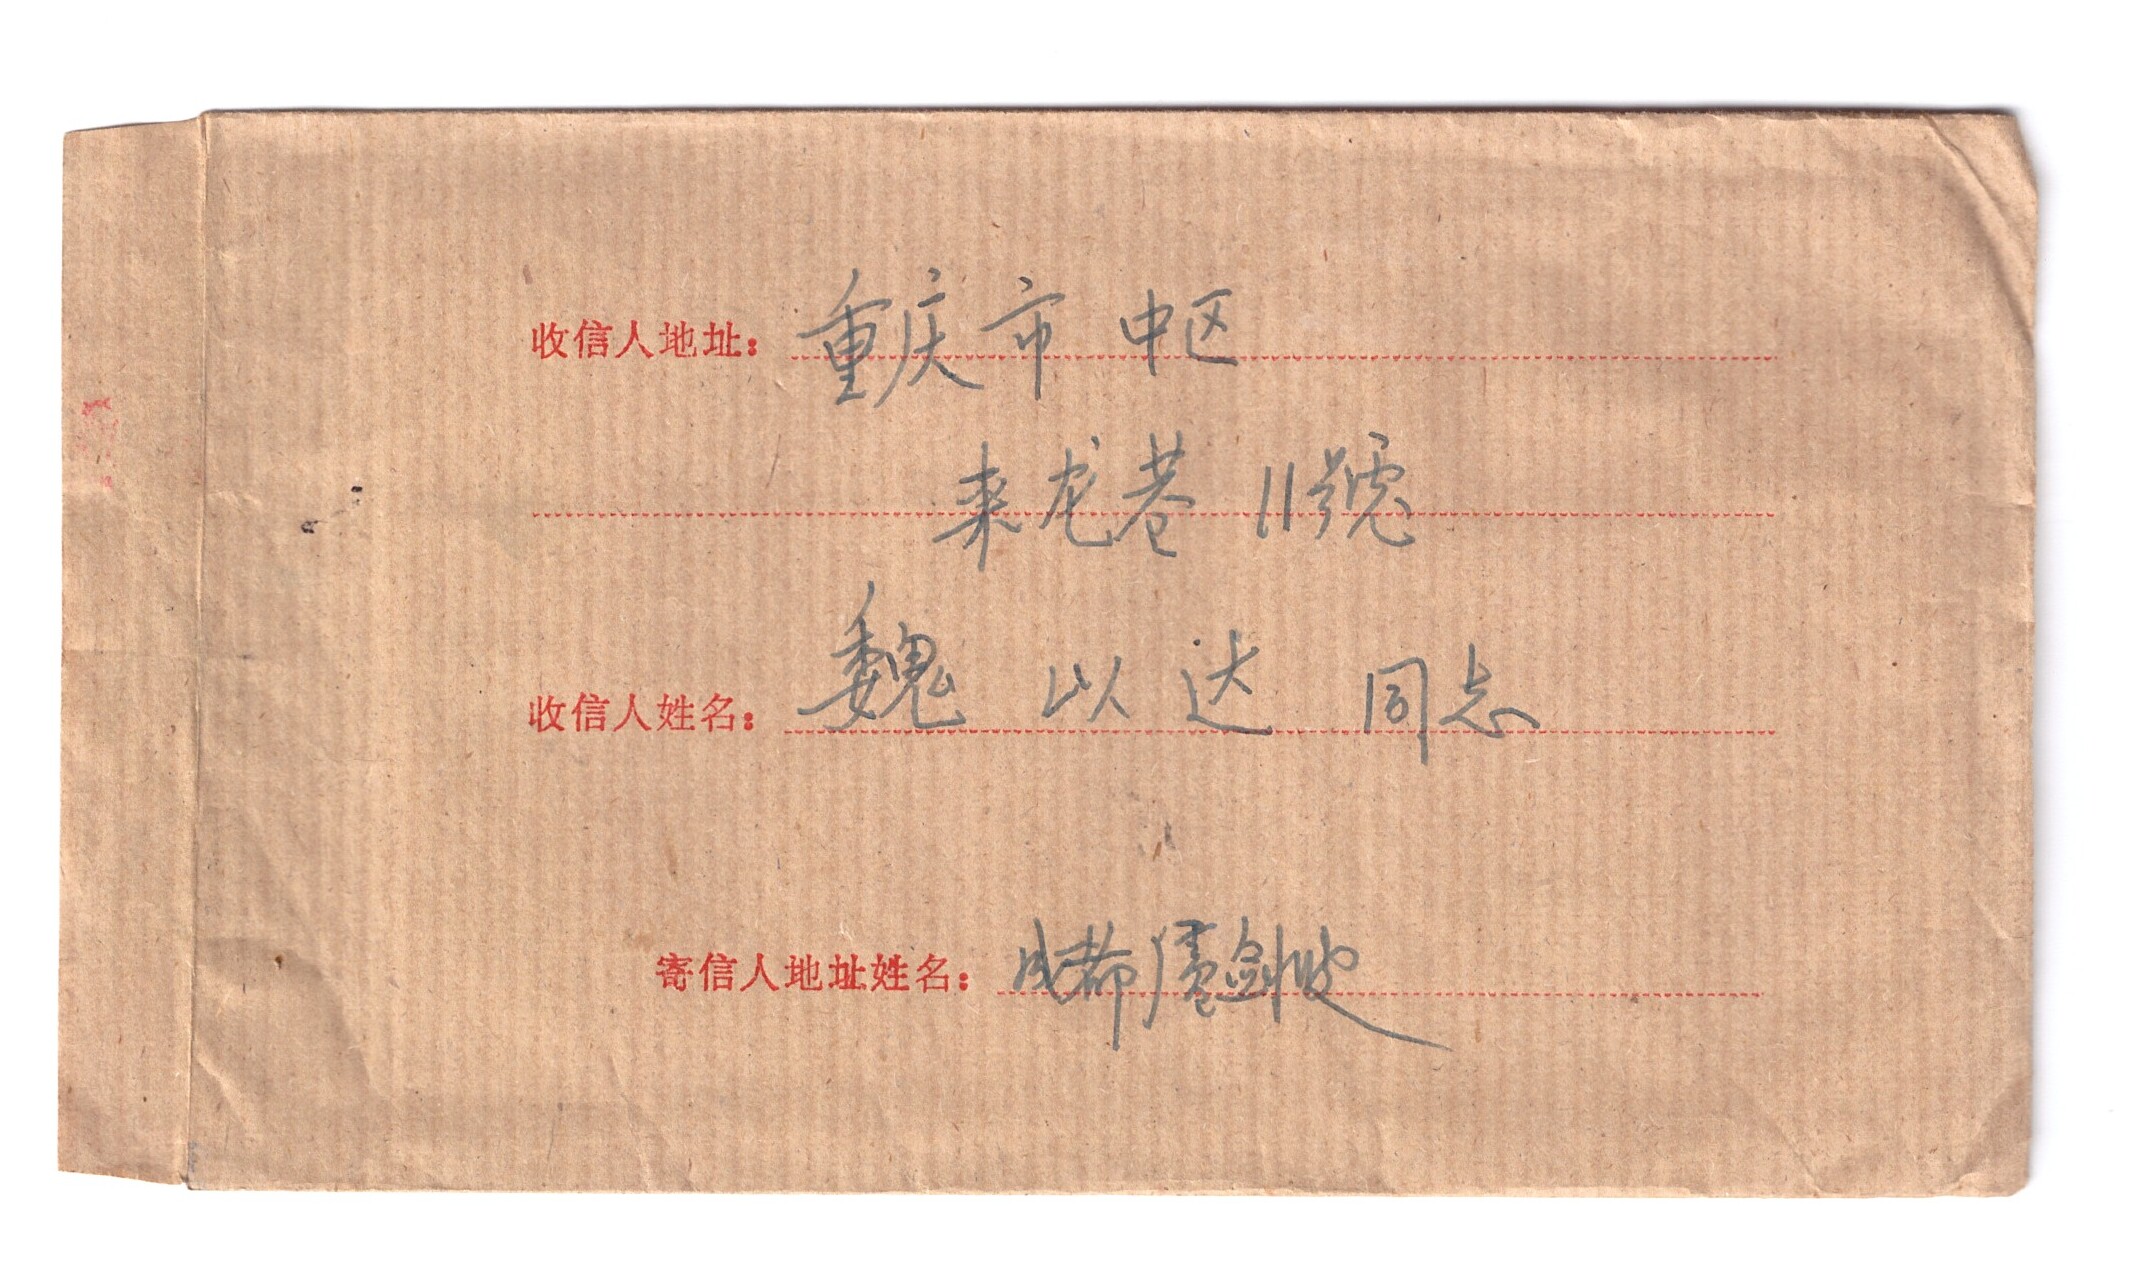 收信人地址：重庆市 中区
来龙巷 11號
收信人姓名：魏 以达 同志
寄信人地址姓名：成都 盧剑波